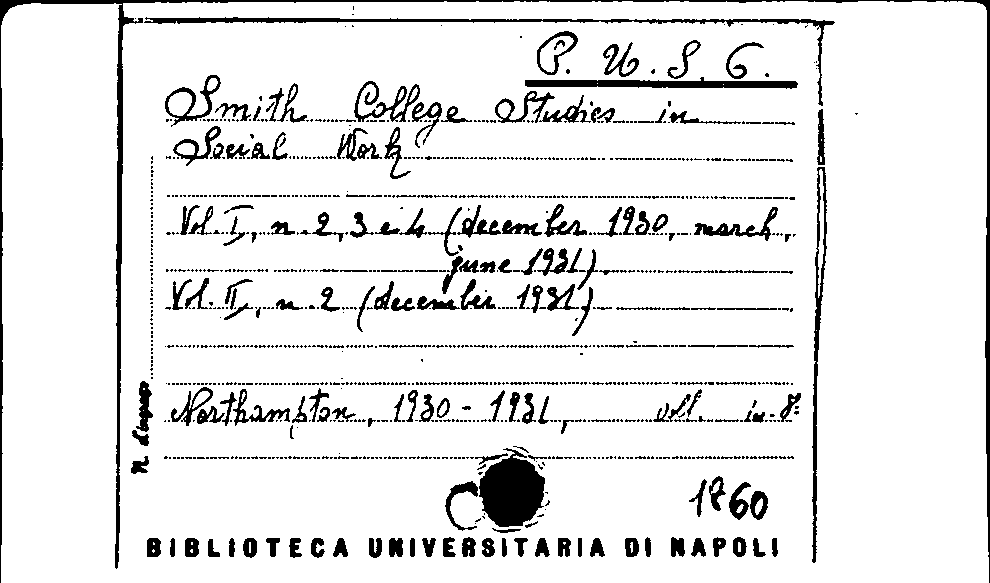 P. U. S. 6.
Smith College Studies in
Social Work.
Vol. I, n. 2, 3 e 4 (december 1930, march,
june 1931).
Vol. II, n. 2 (december 1931)
Northampton, 1930 - 1931, voll. in-8°
N. d'ingresso
1860
BIBLIOTECA UNIVERSITARIA DI NAPOLI